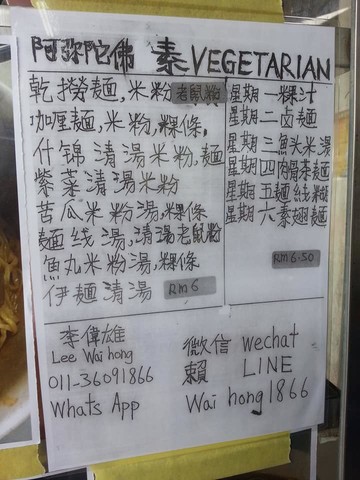 阿弥陀佛 素 VEGETARIAN
乾撈麵,米粉老鼠粉
加厘麵,米粉,粿條,
什锦清湯米粉,麵
紫菜清湯米粉
苦瓜米粉湯,粿條
麵线湯,清湯老鼠粉
魚丸米粉湯,粿條
伊麵清湯 RM6
星期一粿汁
星期二卤麵
星期三魚头米湯
星期四肉骨茶麵
星期五麵线糊
星期六素翅麵
RM6.50
李偉雄
Lee Wai hong
011-36091866
Whats App
微信 wechat
賴 LINE
Wai hong1866